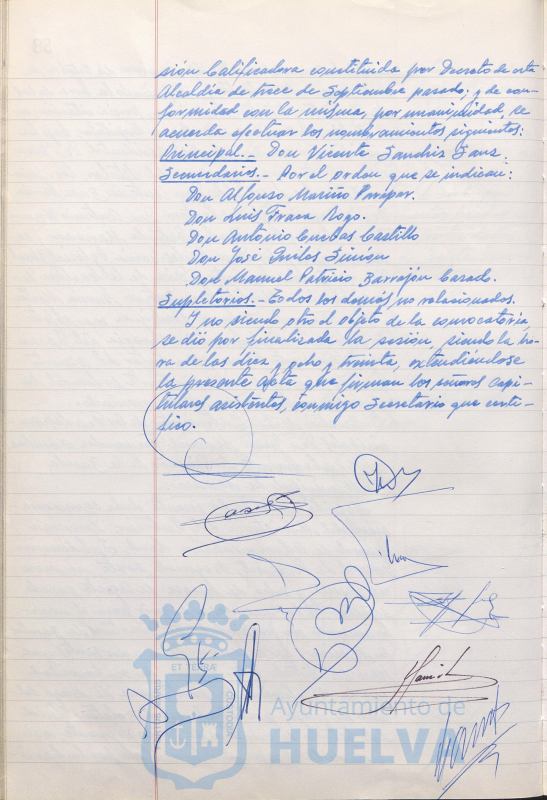 sión Calificadora constituida por Decreto de esta
Alcaldía de trece de Septiembre pasado; y de con-
formidad con la misma, por unanimidad, se
acuerda efectuar los nombramientos siguientes:
Principal.- Don Vicente Sanchis Sanz.
Secundarios.- Por el orden que se indican:
Don Alfonso Mariño
Don Luis Fraga
Don Antonio Cuebas Castillo
Don José Quiles
Don Manuel Patricio Barrajón Casado.
Supletorios.- Todos los demás no relacionados.
Y no siendo otro el objeto de la convocatoria,
se dió por finalizada la sesión, siendo la ho-
ra de las diez y ocho y treinta, extendiéndose
la presente Acta que firman los señores Capi-
tulares asistentes, conmigo Secretario que certi-
fico.
Ayuntamiento de
HUELVA